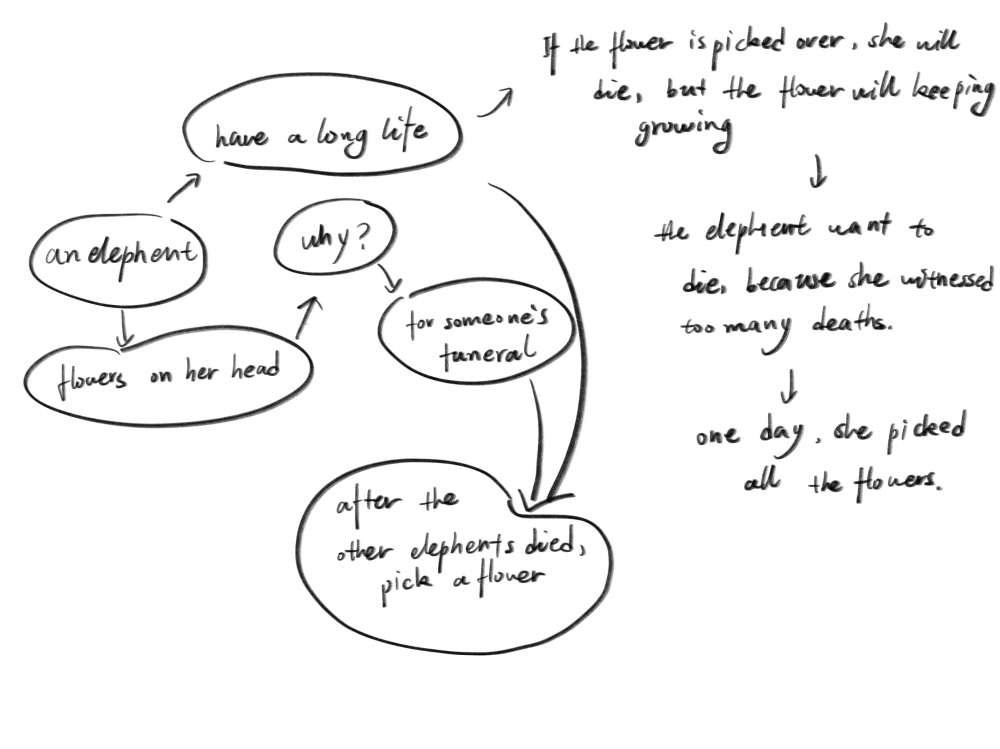 an elephent
have a long life
flowers on her head
why?
for someone's
funeral
after the
other elephents died,
pick a flower
If the flower is picked over, she will
die, but the flower will keeping
growing
the elephent want to
die, because she witnessed
too many deaths.
one day, she picked
all the flowers.